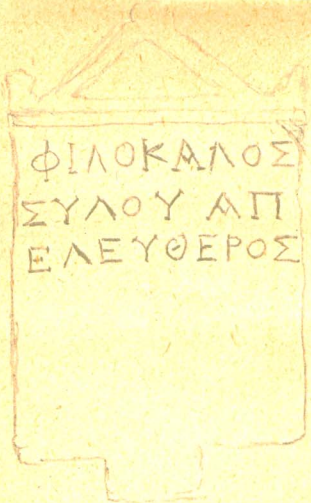 ΦΙΛΟΚΑΛΟΣ
ΣΥΛΟΥ ΑΠ
ΕΛΕΥΘΕΡΟΣ